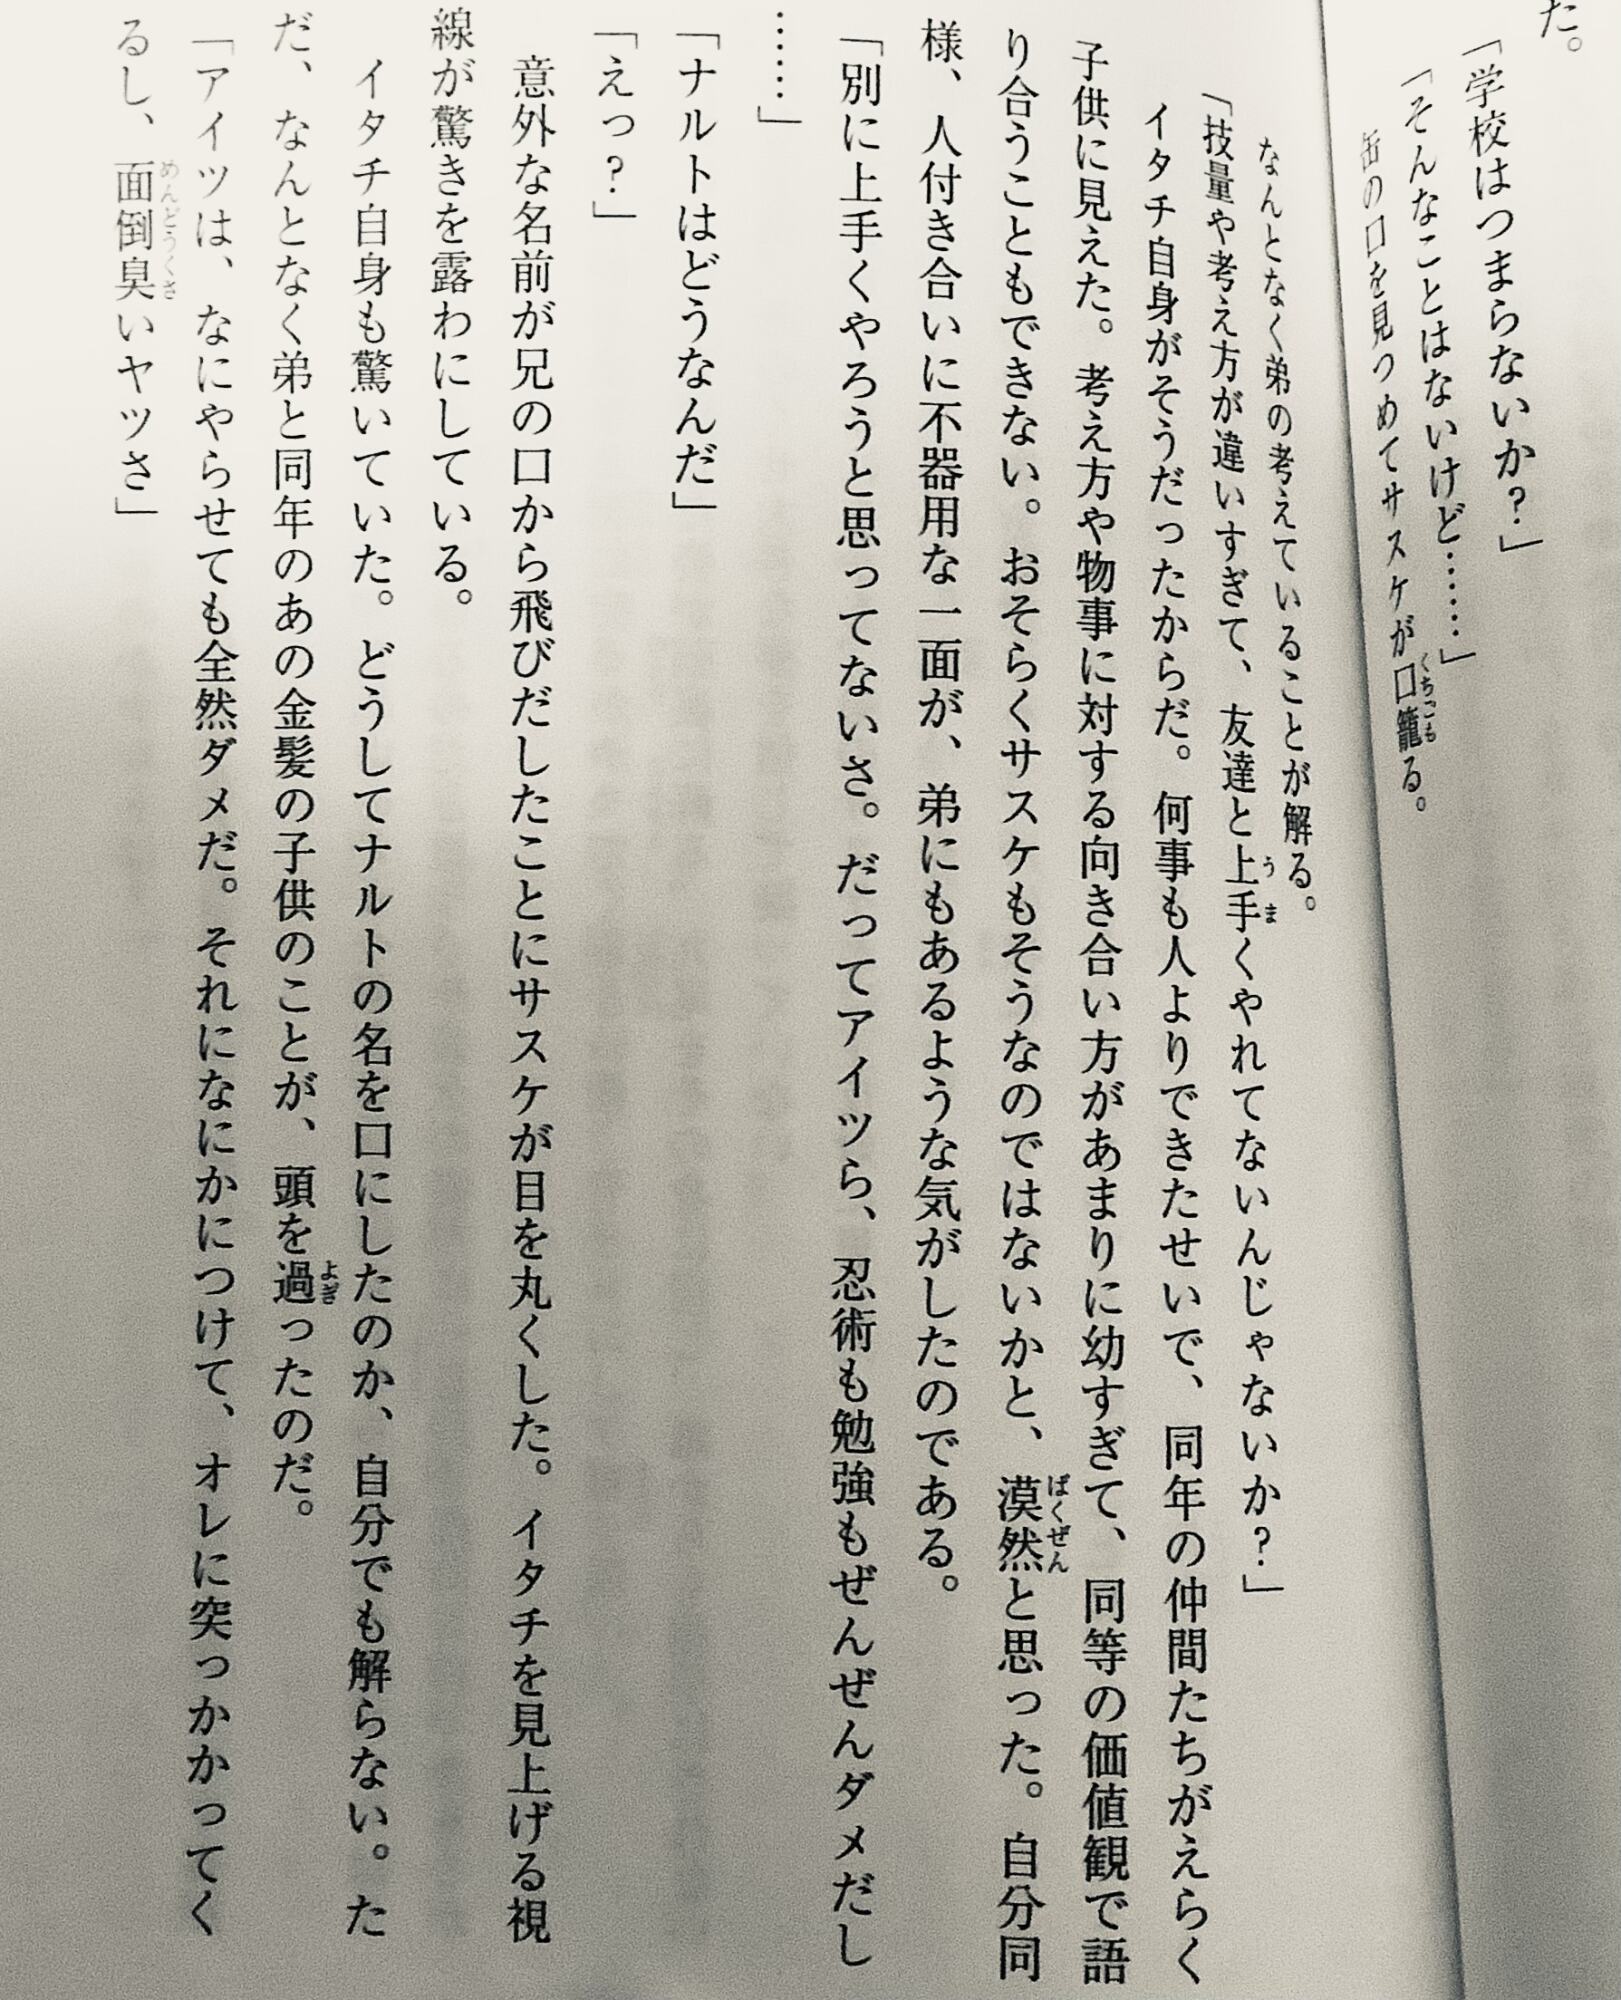 た。
「学校はつまらないか？」
「そんなことはないけど……」
缶の口を見つめてサスケが口籠る。
なんとなく弟の考えていることが解る。
「技量や考え方が違いすぎて、友達と上手くやれてないんじゃないか？」
イタチ自身がそうだったからだ。何事も人よりできたせいで、同年の仲間たちがえらく
子供に見えた。考え方や物事に対する向き合い方があまりに幼すぎて、同等の価値観で語
り合うこともできない。おそらくサスケもそうなのではないかと、漠然と思った。自分同
様、人付き合いに不器用な一面が、弟にもあるような気がしたのである。
「別に上手くやろうと思ってないさ。だってアイツら、忍術も勉強もぜんぜんダメだし
……」
「ナルトはどうなんだ」
「えっ？」
意外な名前が兄の口から飛びだしたことにサスケが目を丸くした。イタチを見上げる視
線が驚きを露わにしている。
イタチ自身も驚いていた。どうしてナルトの名を口にしたのか、自分でも解らない。た
だ、なんとなく弟と同年のあの金髪の子供のことが、頭を過ったのだ。
「アイツは、なにやらせても全然ダメだ。それになにかにつけて、オレに突っかかってく
るし、面倒臭いヤツさ」